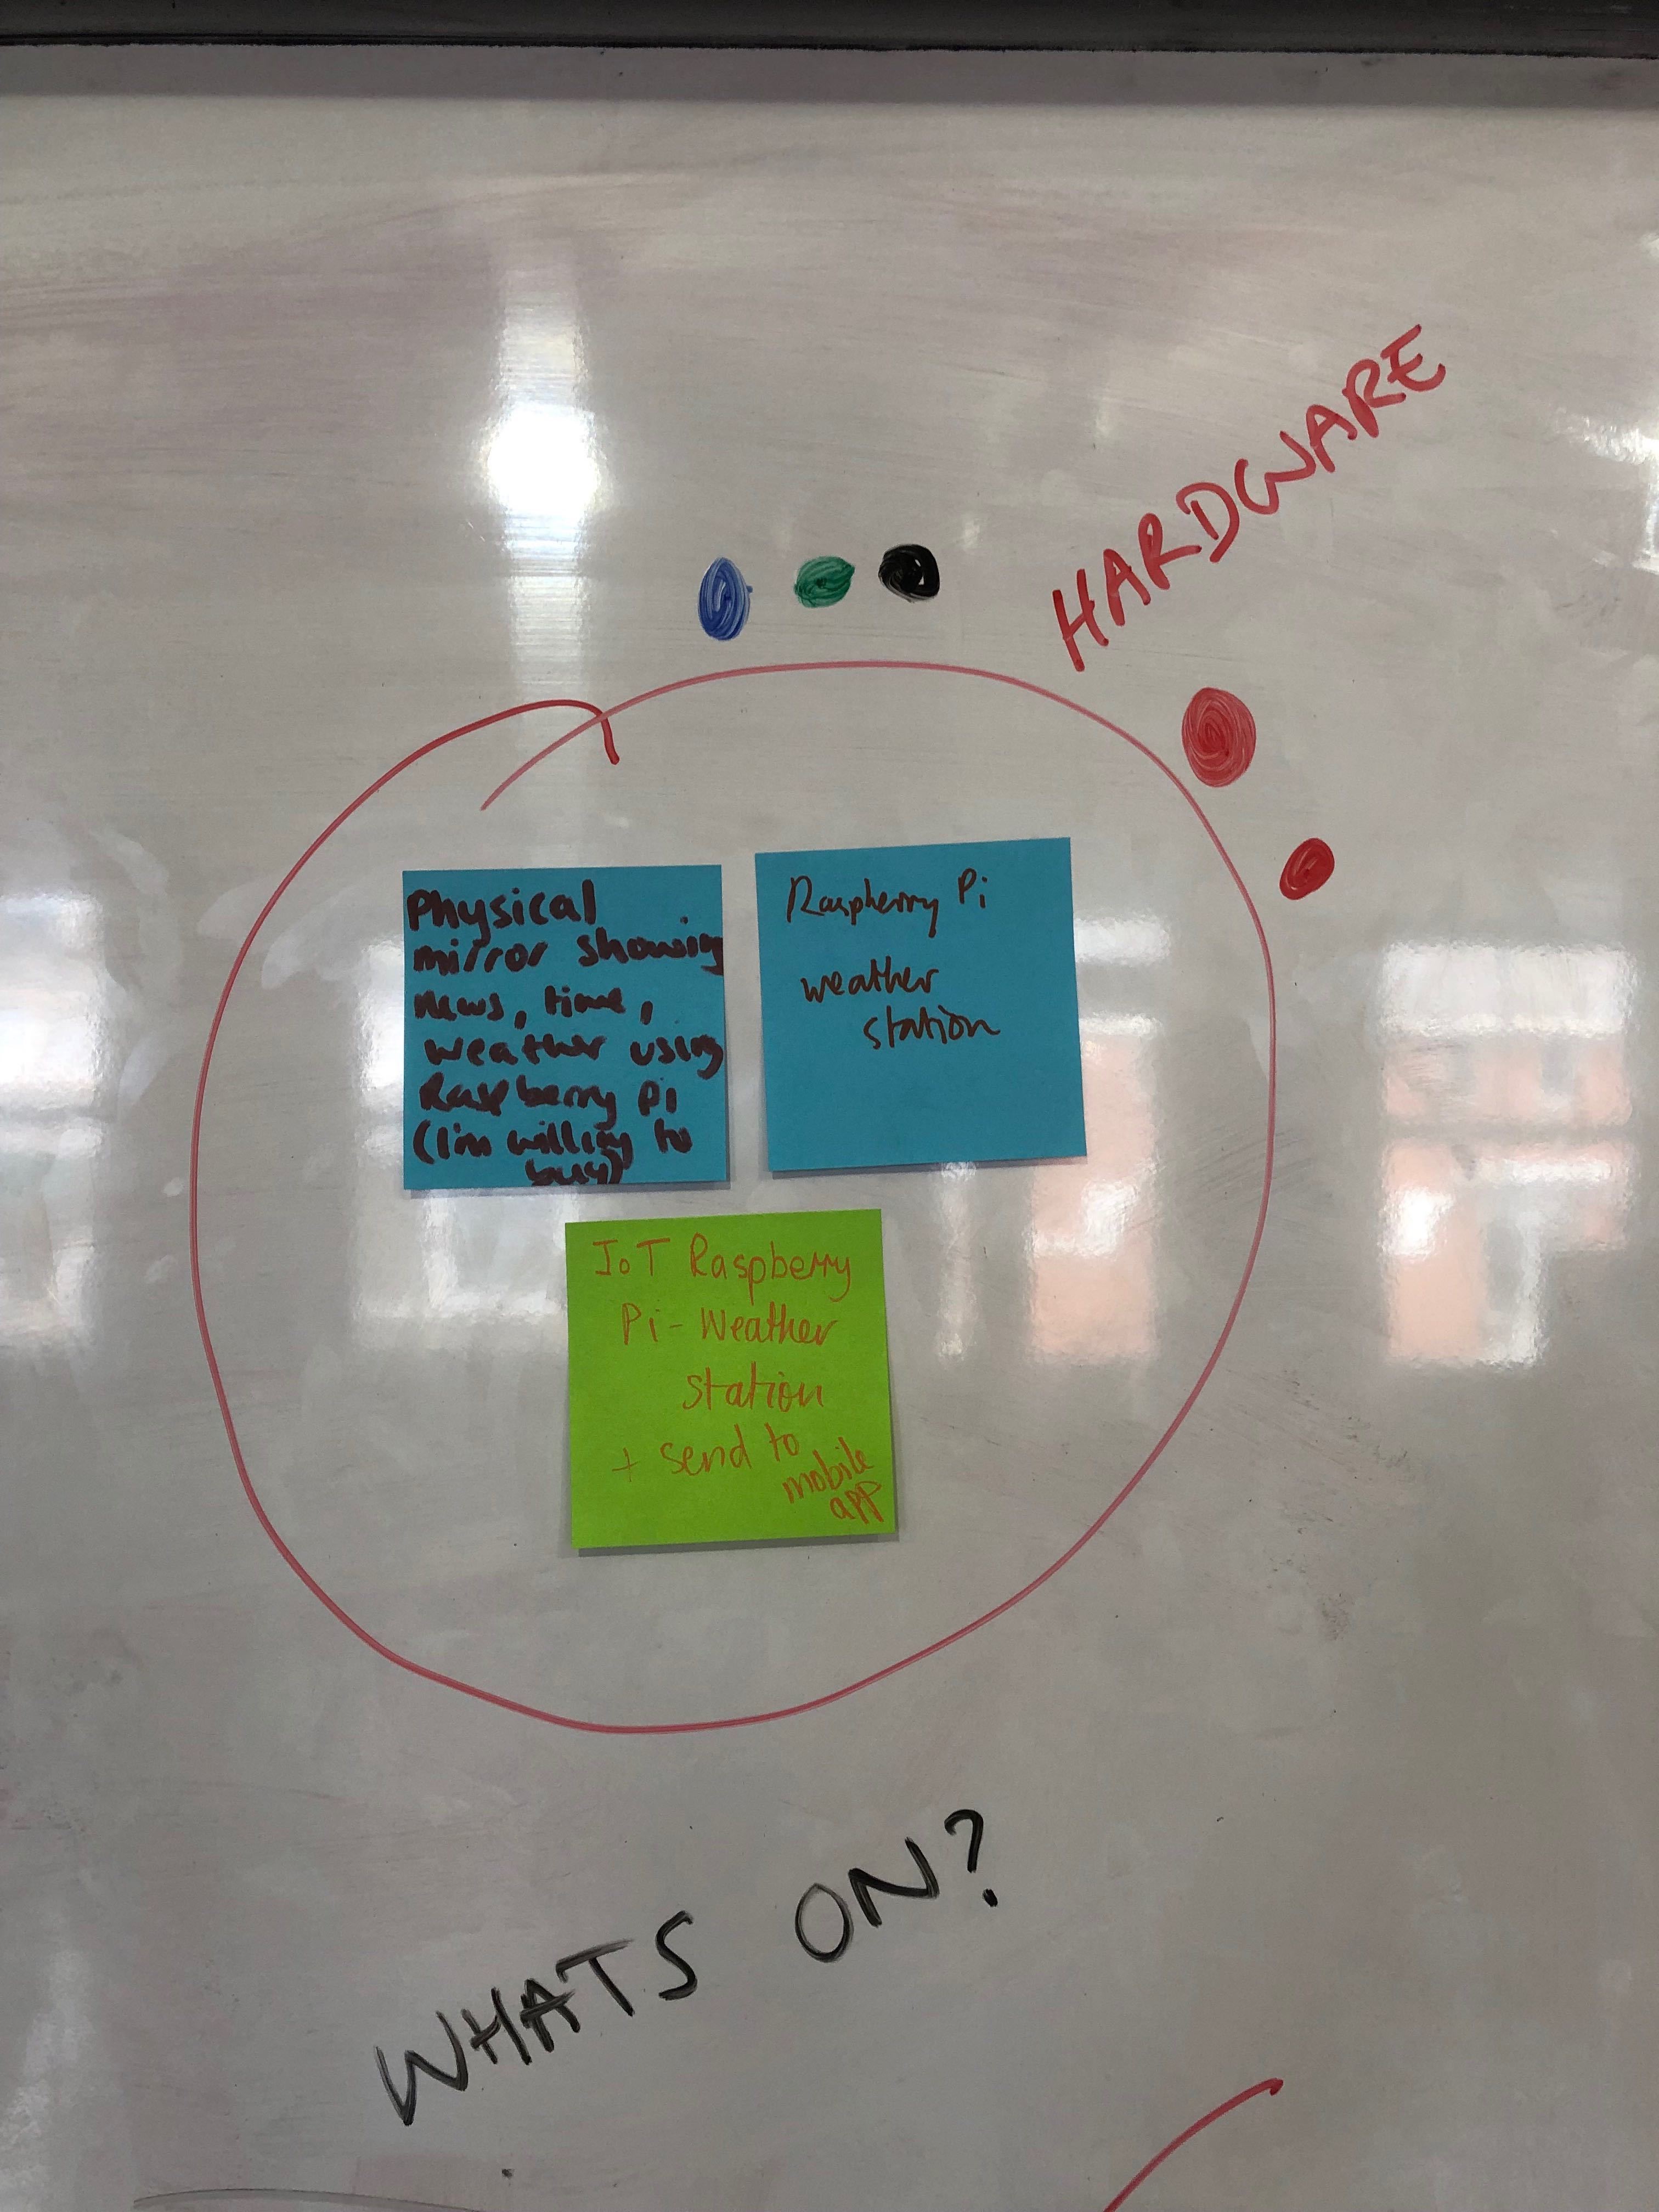 HARDWARE
Physical
mirror showing
news, time,
weather using
Raspberry Pi
(I'm willing to
buy)
Raspberry Pi
weather
station
IoT Raspberry
Pi - Weather
station
+ send to
mobile
app
WHATS ON?